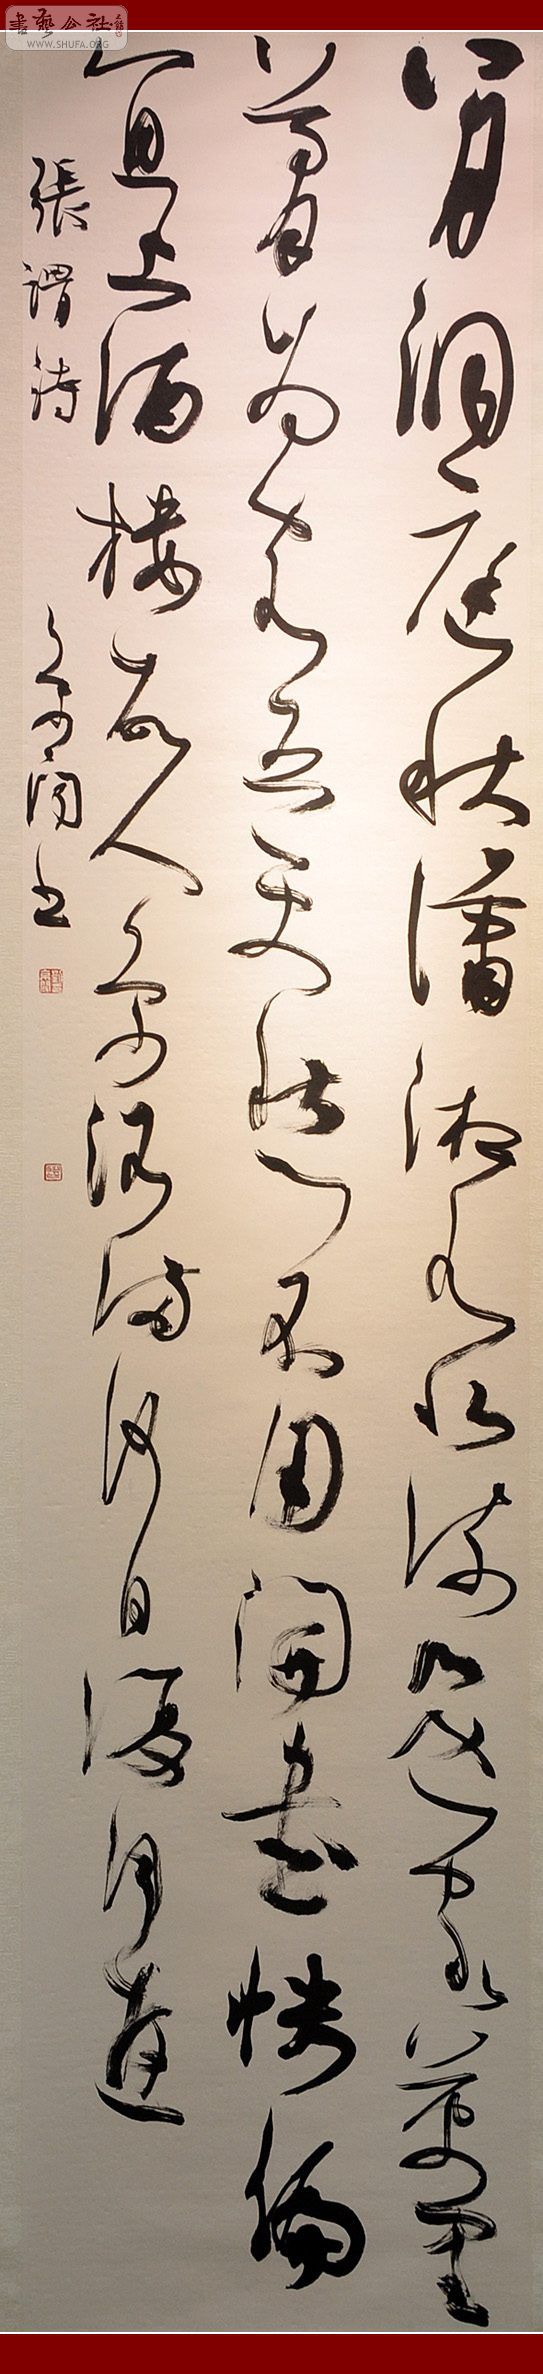 書藝公社
WWW.SHUFA.ORG
八月洞庭秋瀟湘水北流還家萬里
夢為客五更愁不用開書帙偏
宜上酒樓故人京洛滿何日復同遊
張謂詩
書